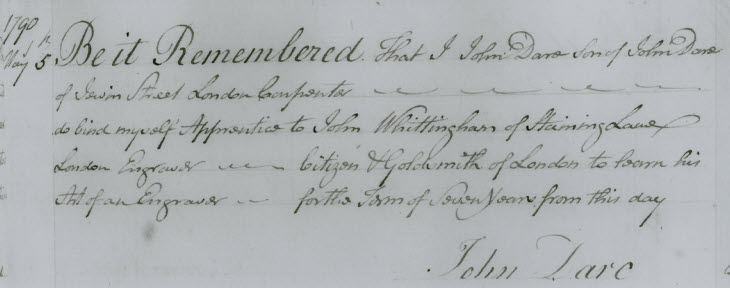 1790
May 5th Be it Remembered. That I John Dare Son of John Dare
of Jewin Street London Carpenter
do bind myself Apprentice to John Whittingham of Staining Lane
London Engraver Citizen & Goldsmith of London to learn his
Art of an Engraver for the Term of Seven Years from this day
John Dare